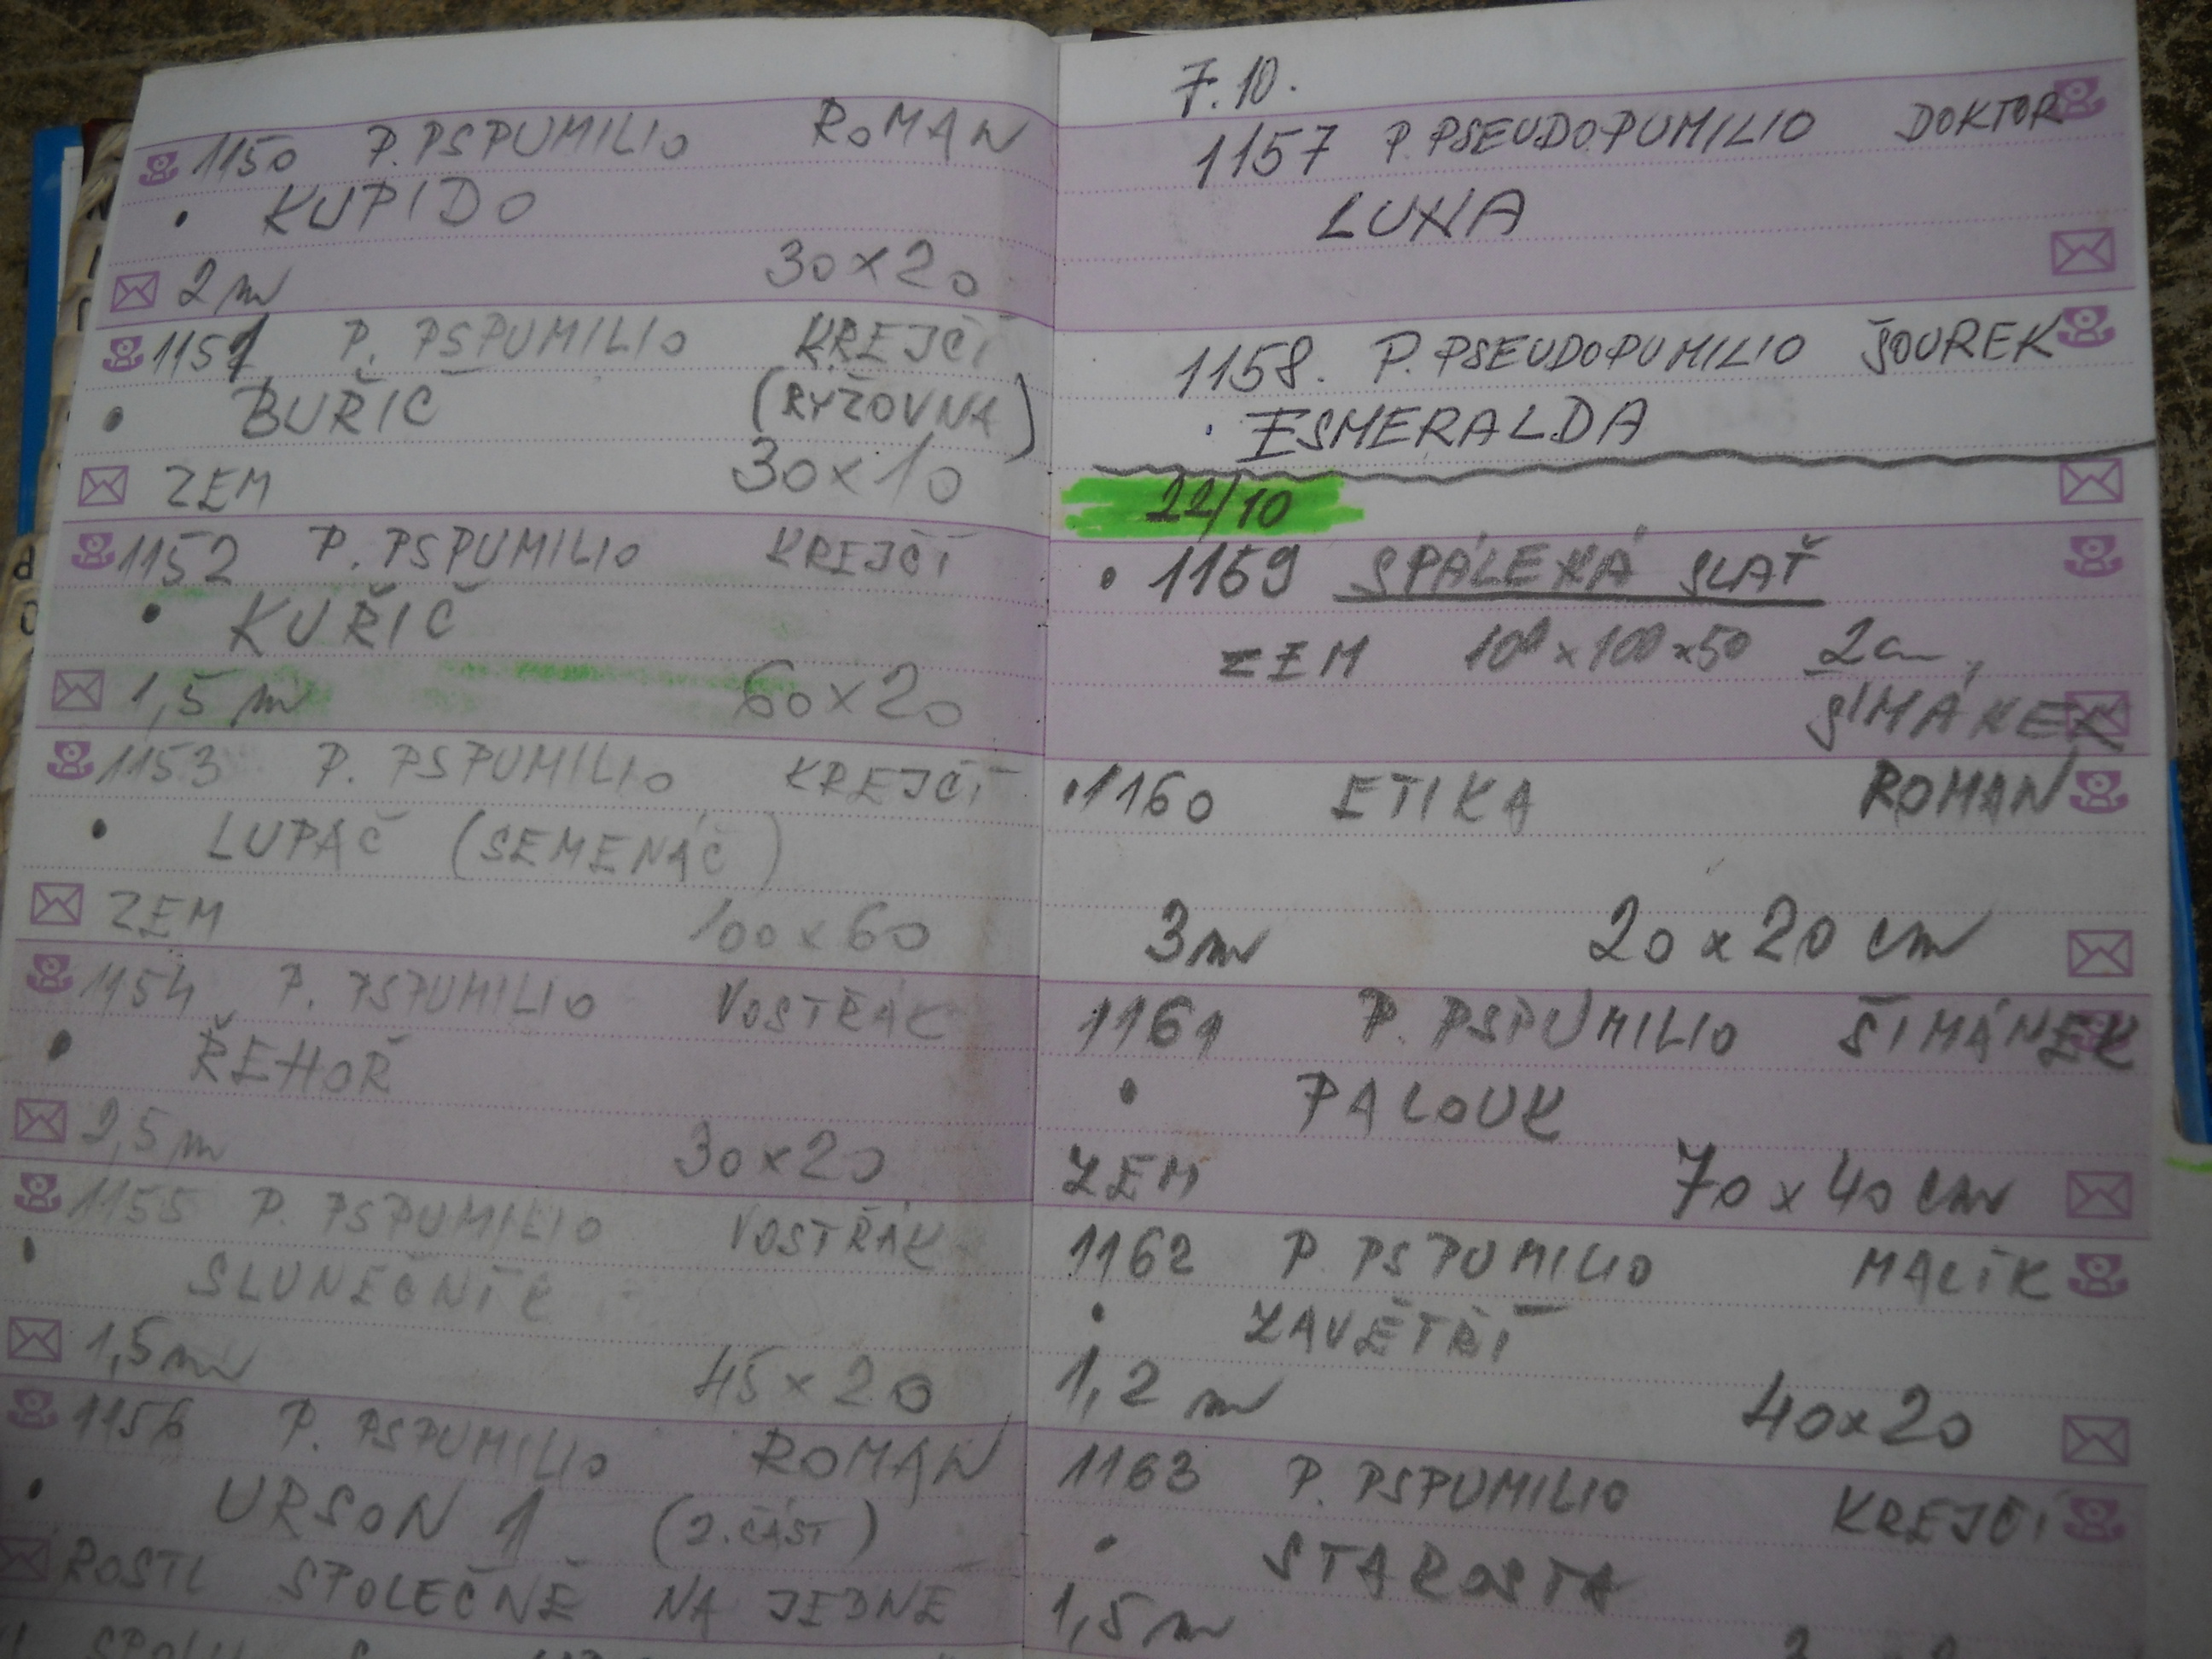 1150 P. PSPUMILIO ROMAN
• KUPIDO
2 m 30x20
1151 P. PSPUMILIO KREJČÍ
• BUŘIČ (RÝŽOVNA)
ZEM 30x10
1152 P. PSPUMILIO KREJČÍ
• KUŘIČ
1,5 m 60x20
1153 P. PSPUMILIO KREJČÍ
• LUPAČ (SEMENÁČ)
ZEM 100x60
1154 P. PSPUMILIO VOSTŘÁK
• ŘEHOŘ
2,5 m 30x20
1155 P. PSPUMILIO VOSTŘÁK
• SLUNEČNÍK
1,5 m 45x20
1156 P. PSPUMILIO ROMAN
• URSON 1 (2. ČÁST)
ROSTL SPOLEČNĚ NA JEDNÉ
7.10.
1157 P. PSEUDOPUMILIO DOKTOR
LUNA
1158. P. PSEUDOPUMILIO ŠOUREK
• ESMERALDA
22/10
• 1159 SPÁLENÁ SLAŤ
ZEM 100x100x50 2cm,
ŠIMÁNEK
• 1160 ETIKA ROMAN
3m 20x20 cm
1161 P. PSPUMILIO ŠIMÁNEK
• PALOUK
ZEM 70x40 cm
1162 P. PSPUMILIO MALÍK
• ZAVĚTŘÍ
1,2 m 40x20
1163 P. PSPUMILIO KREJČÍ
• STAROSTA
1,5 m